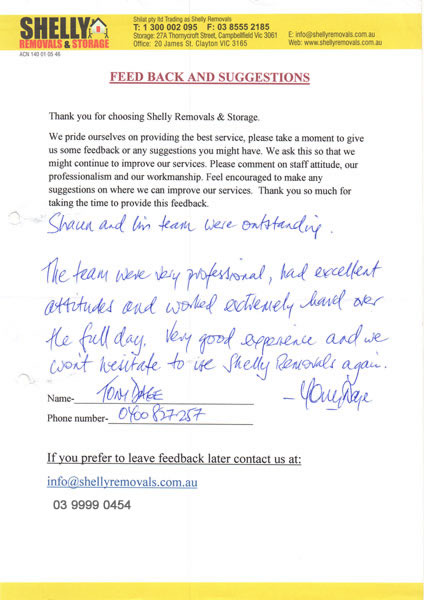 SHELLY
REMOVALS & STORAGE
ACN 140 01 05 46
Shilat pty ltd Trading as Shelly Removals
T: 1 300 002 095 F: 03 8555 2185
Storage: 27A Thornycroft Street, Campbellfield Vic 3061
Office: 20 James St. Clayton VIC 3165
E: info@shellyremovals.com.au
Web: www.shellyremovals.com.au
FEED BACK AND SUGGESTIONS
Thank you for choosing Shelly Removals & Storage.
We pride ourselves on providing the best service, please take a moment to give
us some feedback or any suggestions you might have. We ask this so that we
might continue to improve our services. Please comment on staff attitude, our
professionalism and our workmanship. Feel encouraged to make any
suggestions on where we can improve our services. Thank you so much for
taking the time to provide this feedback.
Shaun and his team were outstanding.
The team were very professional, had excellent
attitudes and worked extremely hard over
the full day. Very good experience and we
won't hesitate to use Shelly Removals again.
Name- TONY DAGE
Phone number- 0400 827 257
If you prefer to leave feedback later contact us at:
info@shellyremovals.com.au
03 9999 0454